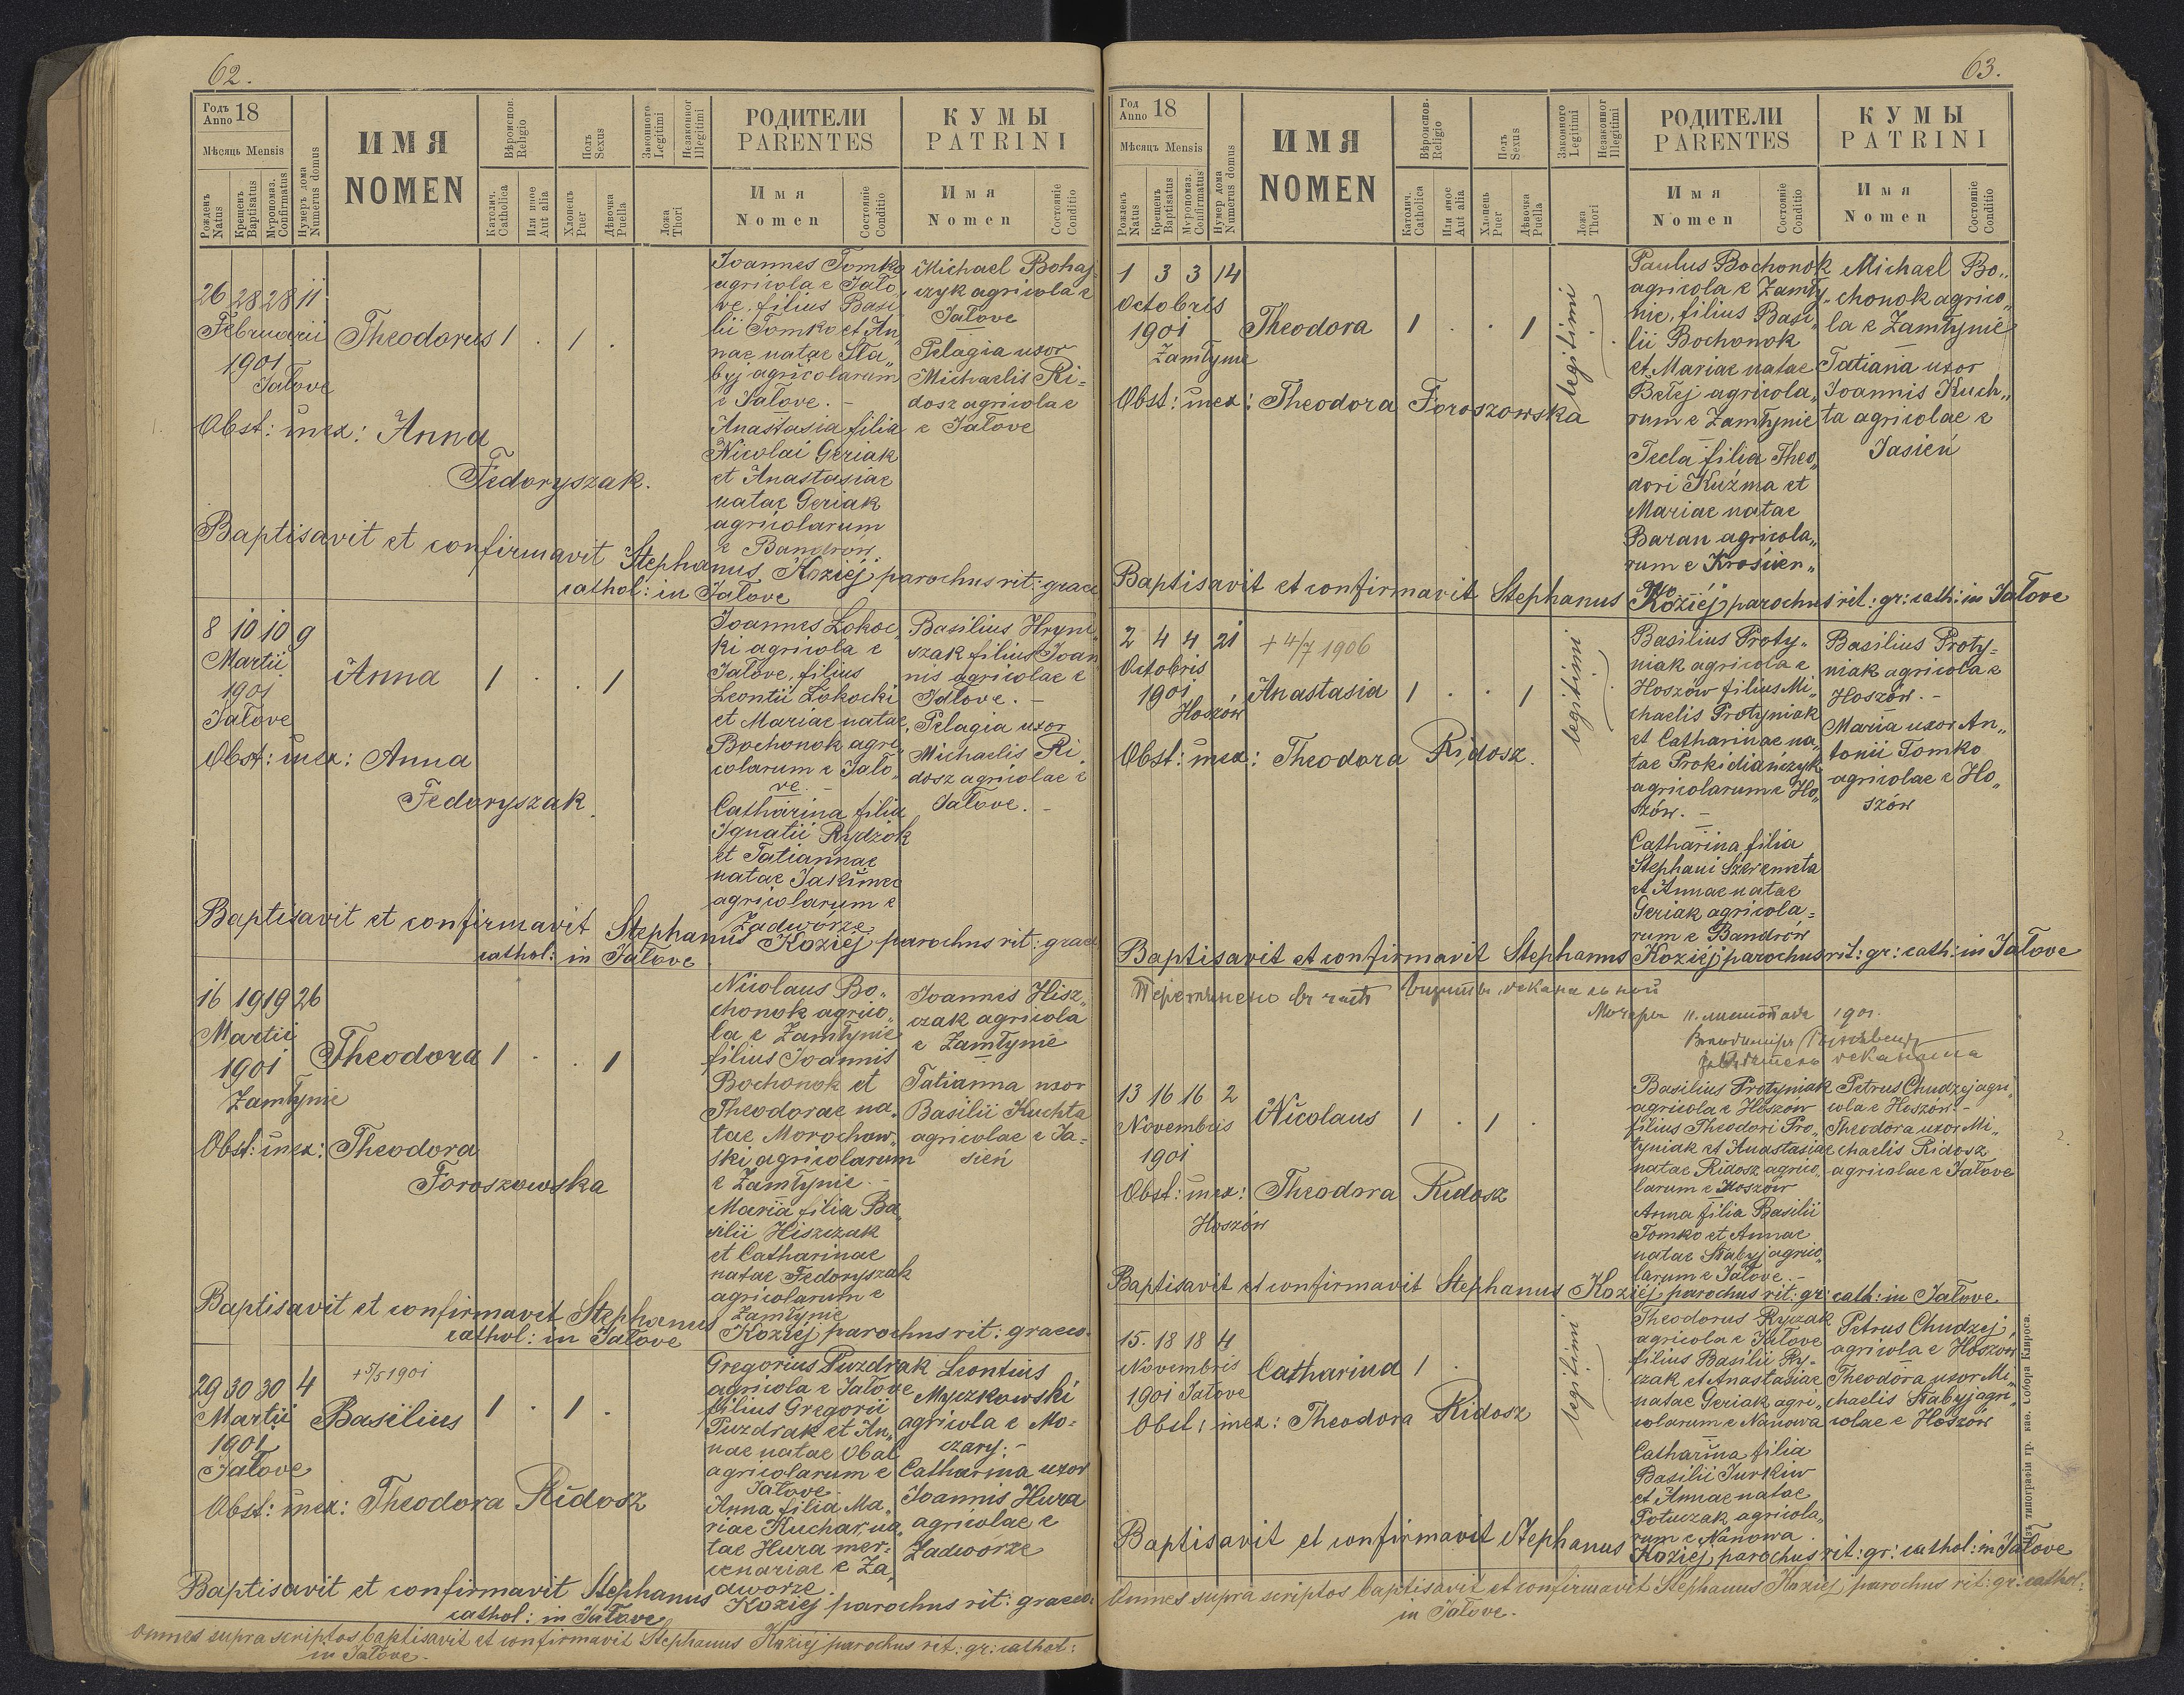 62.
Годъ Anno 18
Мѣсяць Mensis
Рожденъ Natus
Крещенъ Baptisatus
Мѵропомаз. Confirmatus
Нумеръ дома Numerus domus
ИМЯ
NOMEN
Вѣроисповѣд. Religio
Католич. Catholica
Или иное Aut alia
Полъ Sexus
Хлопецъ Puer
Дѣвочка Puella
Законного Legitimi
Незаконног Illegitimi
Ложа Thori
РОДИТЕЛИ
PARENTES
Имя Nomen
Состояніе Conditio
КУМЫ
PATRINI
Имя Nomen
Состояніе Conditio
26 28 28 11
Februarii
1901
Jałove
Theodorus 1 . 1 .
Obst: inex: Anna
Fedoryszak.
Joannes Tomko
agricola e Jało„
ve, filius Basi„
lii Tomko et An„
nae natae Sła„
byj agricolarum
e Jałove. –
Anastasia filia
Nicolai Geriak
et Anastasiae
natae Geriak
agricolarum
e Bandrów.
Michael Bohaj„
czyk agricola e
Jałove
Pelagia uxor
Michaelis Ri=
dosz agricolae
e Jałove
Baptisavit et confirmavit Stephanus Koziej parochus rit: graec
cathol: in Jałove
8 10 10 9
Martii
1901
Jałove
Anna 1 . . 1
Obst: inex: Anna
Fedoryszak.
Joannes Łokoc„
ki agricola e
Jałove, filius
Leontii Łokocki
et Mariae natae
Bochonok agri„
colarum e Jało„
ve. –
Catharina filia
Ignatii Rydzok
et Tatiannae
natae Jakimec
agricolarum e
Zadwórze
Basilius Hryni„
szak filius Joan
nis agricolae e
Jałove. –
Pelagia uxor
Michaelis Ri„
dosz agricolae e
Jałove. –
Baptisavit et confirmavit Stephanus Koziej parochus rit: graec
cathol: in Jałove.
16 19 19 26
Martii
1901
Zamłynie
Theodora 1 . . 1
Obst: inex: Theodora
Foroszowska
Nicolaus Bo„
chonok agrico„
la e Zamłynie
filius Joannis
Bochonok et
Theodorae na„
tae Morochow„
ski agricolarum
e Zamłynie. –
Maria filia Ba„
silii Hiszczak
et Catharinae
natae Fedoryszak
agricolarum e
Zamłynie
Joannes Hisz„
czak agricola
e Zamłynie
Tatianna uxor
Basilii Kuchta
agricolae e Ja=
sień
Baptisavit et confirmavet Stephanus Koziej parochus rit: graeco
cathol: in Jałove
29 30 30 4
Martii
1901
Jałove
+ 5/5 1901
Basilius 1 . 1 .
Obst: inex: Theodora Ridosz
Gregorius Puzdrak
agricola e Jałove
filius Gregorii
Puzdrak et An„
nae natae Obal
agricolarum e
Jałove.
Anna filia Ma„
riae Kuchar na„
tae Hura mer„
cenariae e Za„
dworze.
Leontius
Myczkowski
agricola e Mo=
czary. –
Catharina uxor
Joannis Hura
agricolae e
Zadworze
Baptisavit et confirmavit Stephanus Koziej parochus rit: graeco
cathol: in Jałove
Omnes supra scriptos baptisavit et confirmavit Stephanus Koziej parochus rit: gr: cathol:
in Jałove.
63.
Год Anno 18
Мѣсяцъ Mensis
Рожденъ Natus
Крещенъ Baptisatus
Мѵропомаз. Confirmatus
Нумер дома Numerus domus
ИМЯ
NOMEN
Вѣроисповѣд. Religio
Католич. Catholica
Или иное Aut alia
Полъ Sexus
Хлопецъ Puer
Дѣвочка Puella
Законного Legitimi
Незаконног Illegitimi
Ложа Thori
РОДИТЕЛИ
PARENTES
Имя Nomen
Состояніе Conditio
КУМЫ
PATRINI
Имя Nomen
Состояніе Conditio
1 3 3 14
Octobris
1901
Zamłynie
Theodora 1 . . 1 legitimi
Obst: inex: Theodora Foroszowska
Paulus Bochonok
agricola e Zamły„
nie, filius Basi„
lii Bochonok
et Mariae natae
Bełej agricola„
rum e Zamłynie
Tecla filia Theo„
dori Kuźma et
Mariae natae
Baran agricola„
rum e Krościen„
ko
Michael Bo„
chonok agrico„
la e Zamłynie
Tatiana uxor
Joannis Kuch„
ta agricolae e
Jasień
Baptisavit et confirmavit Stephanus Koziej parochus rit: gr: cath: in Jałove
2 4 4 21
Octobris
1901
Hoszów
+ 4/7 1906
Anastasia 1 . . 1 legitimi
Obst: inex: Theodora Ridosz.
Basilius Proty„
niak agricola e
Hoszów filius Mi„
chaelis Protyniak
et Catharinae na„
tae Prokidiańczyk
agricolarum e Ho„
szów. –
Catharina filia
Stephani Szeremeta
et Annae natae
Geriak agricola=
rum e Bandrów
Basilius Proty=
niak agricola e
Hoszów. –
Maria uxor An„
tonii Tomko
agricolae e Ho„
szów
Baptisavit et confirmavit Stephanus Koziej parochus rit: gr: cath: in Jałove
13 16 16 2
Novembris
1901
Nicolaus 1 . 1 .
Obst: inex: Theodora Ridosz
Hoszów
Basilius Protyniak
agricola e Hoszów
filius Theodori Pro„
tyniak et Anastasiae
natae Ridosz agrico„
larum e Hoszów
Anna filia Basilii
Tomko et Annae
natae Słabyj agrico„
larum e Jałove. –
Petrus Chudzej agri„
cola e Hoszów. –
Theodora uxor Mi„
chaelis Ridosz
agricolae e Jałove
Baptisavit et confirmavit Stephanus Koziej parochus rit: gr: cath: in Jałove.
15. 18 18 4
Novembris
1901 Jałove
Catharina 1 . legitimi
Obst: inex: Theodora Ridosz
Theodorus Ryczak
agricola e Jałove
filius Basilii Ry-
czak et Anastasiae
natae Geriak agri„
colarum e Nanowa
Catharina filia
Basilii Jurkiw
et Annae natae
Potuczak agricola„
rum e Nanowa.
Petrus Chudzej,
agricola e Hoszów
Theodora uxor Mi„
chaelis Słabyj agri„
colae e Hoszów
Baptisavit et confirmavit Stephanus Koziej parochus rit: gr: cathol: in Jałove
Omnes supra scriptos baptisavit et confirmavit Stephanus Koziej parochus rit: gr: cathol:
in Jałove.
Изъ типографіи гр. каѳ. Собора Клироса.